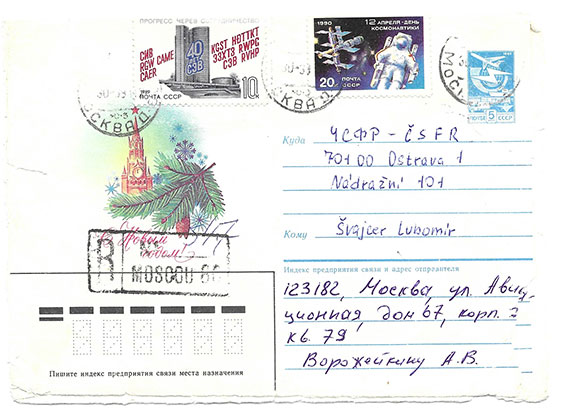 ПРОГРЕСС ЧЕРЕЗ СОТРУДНИЧЕСТВО
СИВ
RGW CAME
CAER
40
СЭВ
KGST НӨТТКТ
ЗЗХТЅ RWPG
СЭВ RVHP
1989 ПОЧТА СССР 10К
1990 12 АПРЕЛЯ-ДЕНЬ
КОСМОНАВТИКИ
20К ПОЧТА СССР
ПОЧТА СССР
5
МОСКВА
МОСКВА
С Новым
годом!
R
MOSCOU
Куда ЧСФР - ČSFR
701 00 Ostrava 1
Nádražní 101
Кому Švajcer Lubomír
Индекс предприятия связи и адрес отправителя
123182, Москва, ул. Авиа-
ционная, дом 67, корп. 2
кв. 79
Ворожейкину А.В.
Пишите индекс предприятия связи места назначения